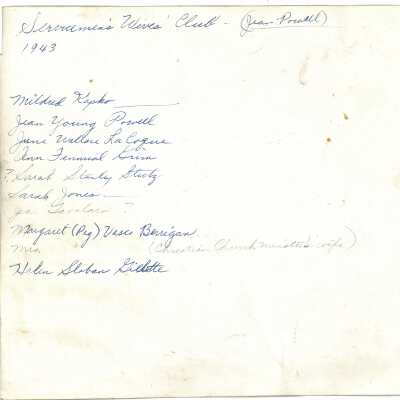 Servicemen's Wives' Club - (Jean Powell)
1943
Mildred Kapko
Jean Young Powell
June Wallace LaCoque
Ann Grim
? Sarah Stanley Stutz
Sarah Jones
Margaret (Peg) Vases Berrigan
Mrs (Christian Church Minister's wife)
Helen Sloban Gillette